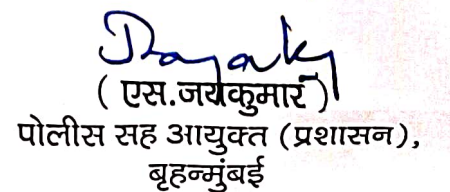 ( एस.जयकुमार )
पोलीस सह आयुक्त (प्रशासन),
बृहन्मुंबई